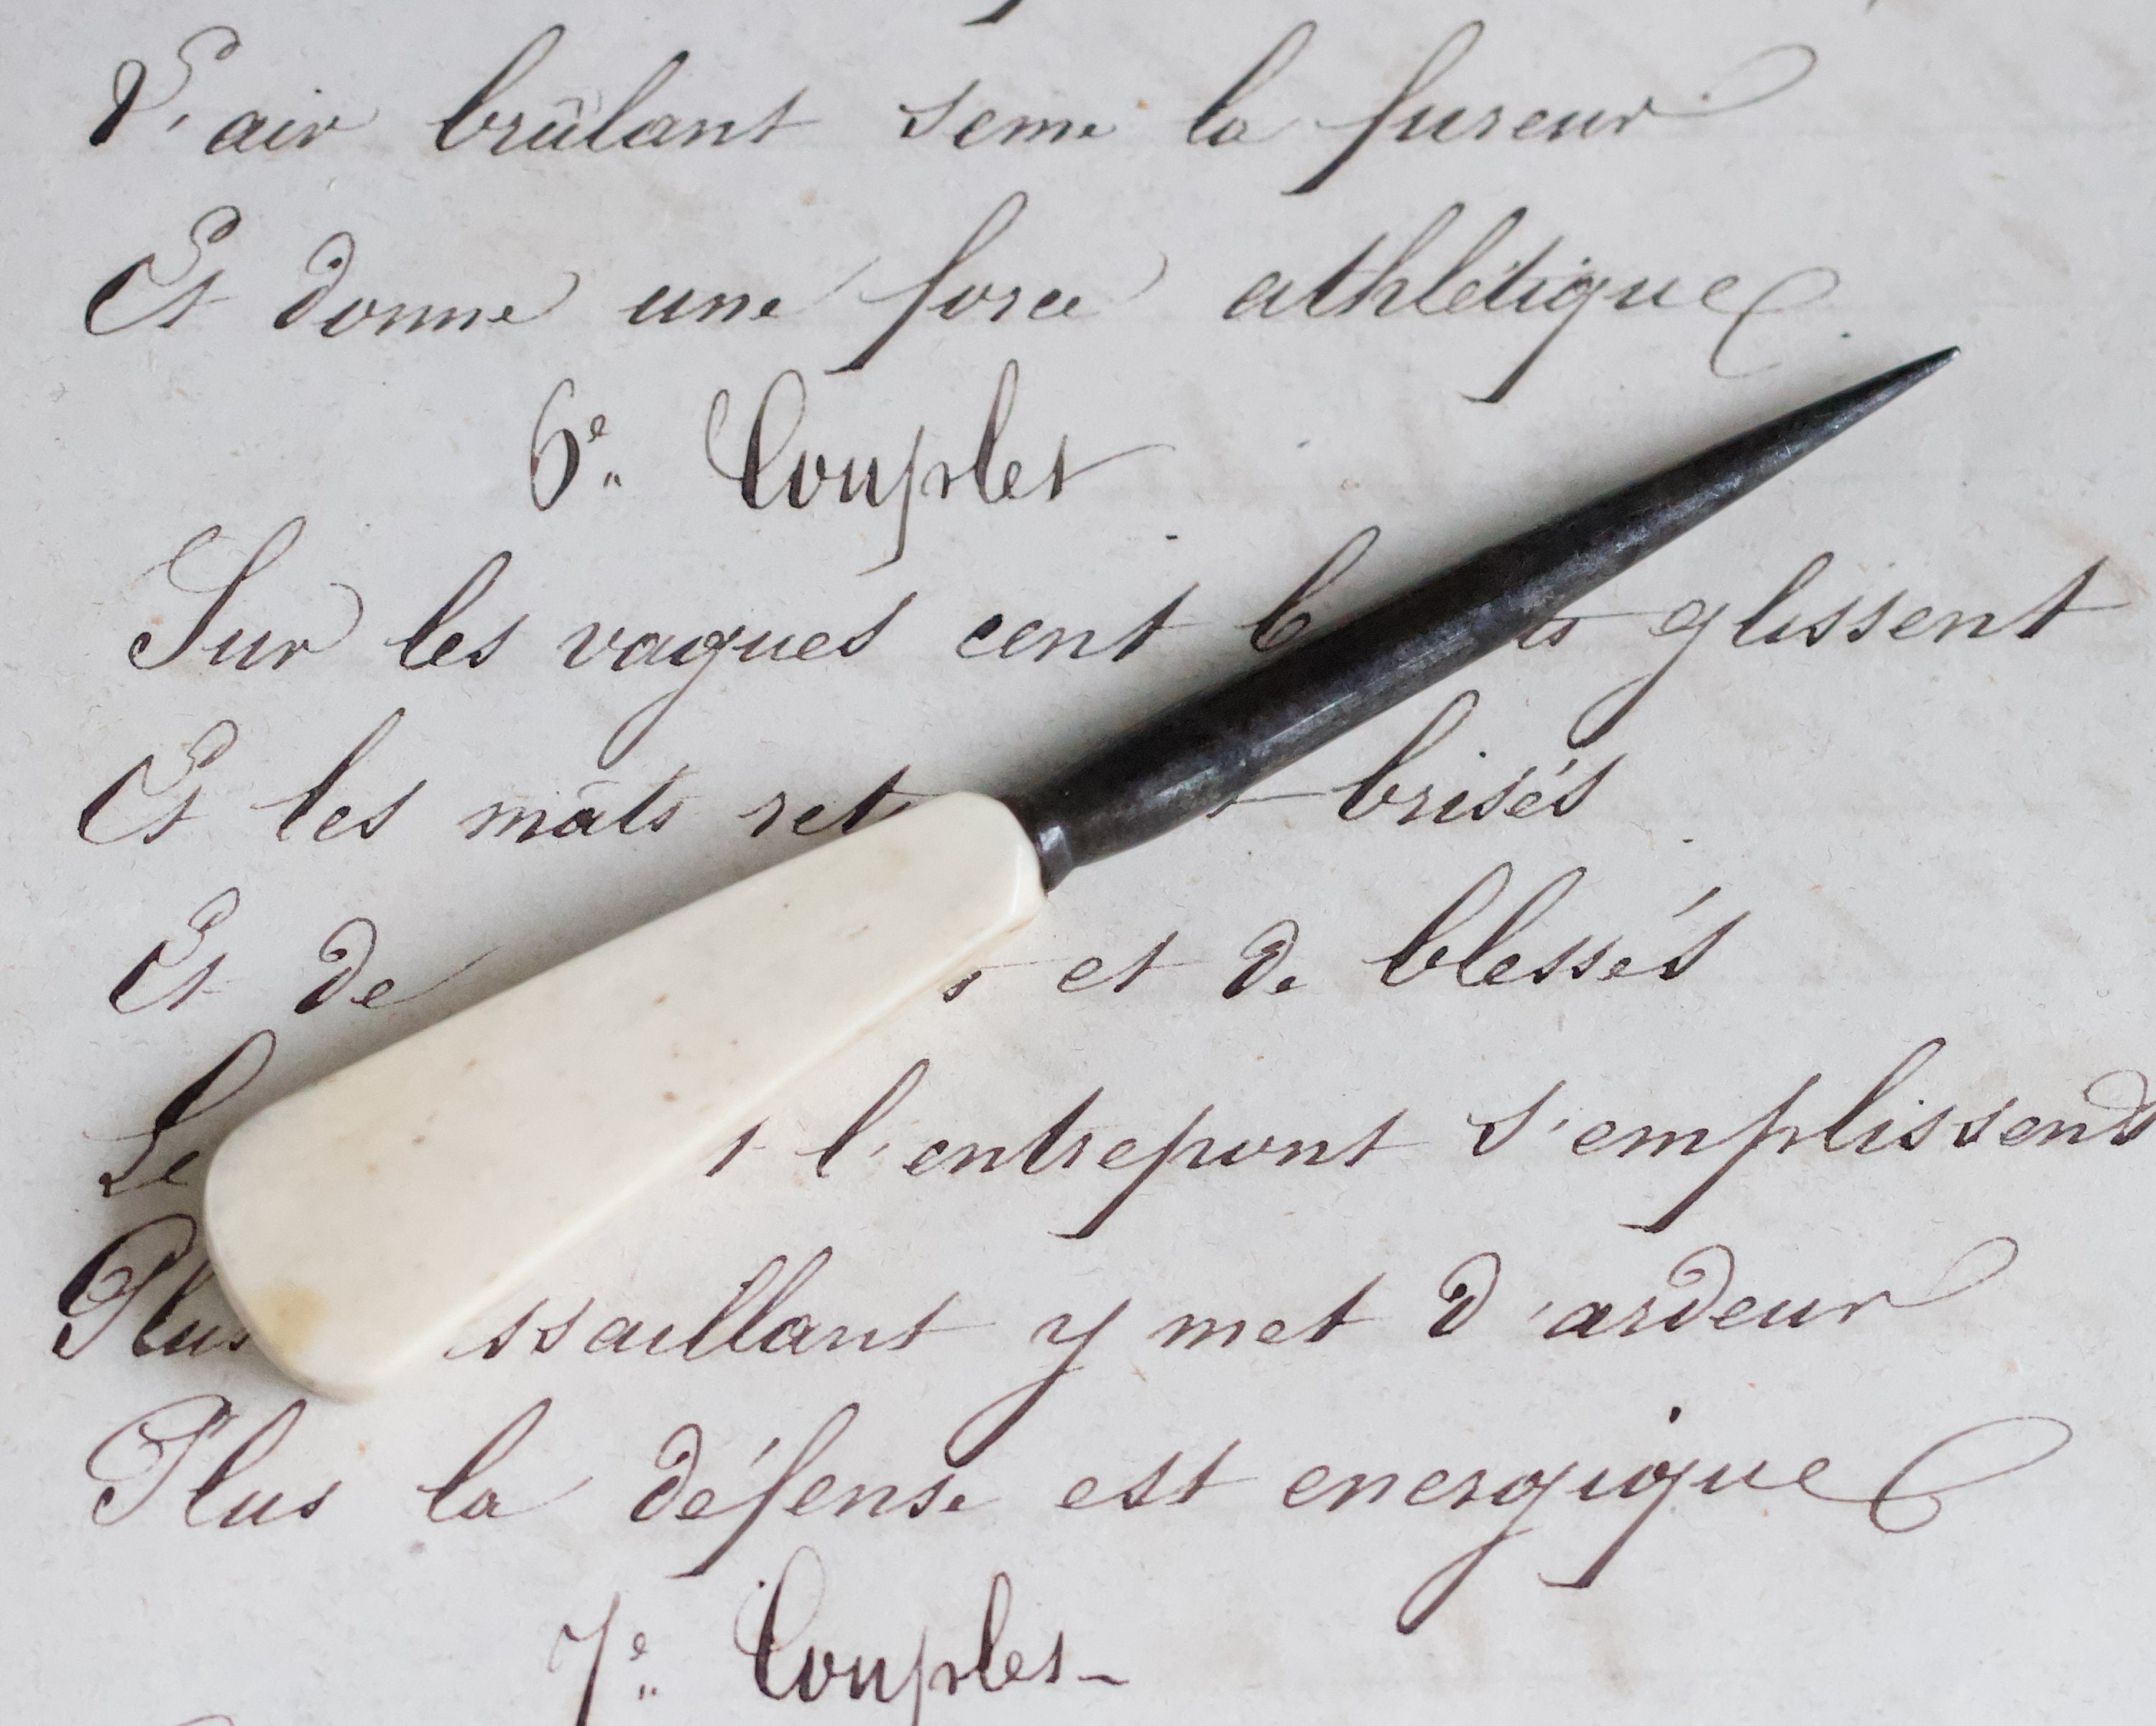 L'air brûlant seme la fureur
Et donne une force athlétique
6e Couplet
Sur les vagues cent glissent
Et les mâts brisés
Et de et de blessés
l'entrepont s'emplissent
Plus y met d'ardeur
Plus la défense est energique
7e Couplet